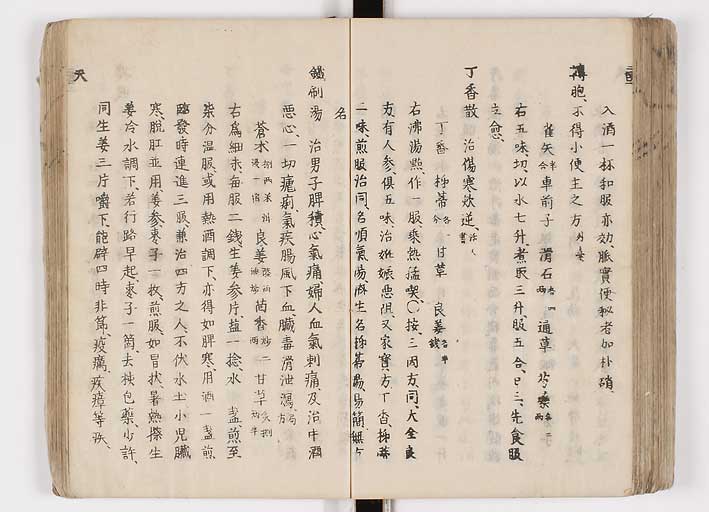 入酒一杯和服亦効、脈實便秘者加朴硝
轉胞、不得小便主之方
雀矢 車前子 滑石 通草 芍藥
右五味、切、以水七升、煮取三升、服五合、日三、先食服
立愈、
丁香散 治傷寒咳逆、
丁香 柿蔕 甘草 良姜
右沸湯㸃作一服乘熱猛喫、〇按、三因方同大全良
方有人參、俱五味、治妊娠惡阻、又家寶方丁香、柿蔕
二味、煎服治同、名順氣湯、濟生名柿蔕湯、易簡無
名
鐵刷湯 治男子脾積心氣痛、婦人血氣刺痛、及治中酒
惡心、一切瘧痢、氣疾腸風下血、臟毒滑泄瀉、
蒼朮 良姜 茴香 甘草
右為細末、每服二錢、生姜参片、鹽一捻、水一盞、煎至
柒分溫服、或用熱酒調下、亦得如脾寒、用酒一盞煎
臨發時連進三服、兼治四方之人、不伏水土小児臟
寒、脫肛並用、姜参枣子一枚、煎服、如冒伏暑熱擦生
姜冷水調下、若行路早起、枣子一箇、去核包藥少許、
同生姜三片嚼下、能辟四時非節疫癘、疾瘴等疾、